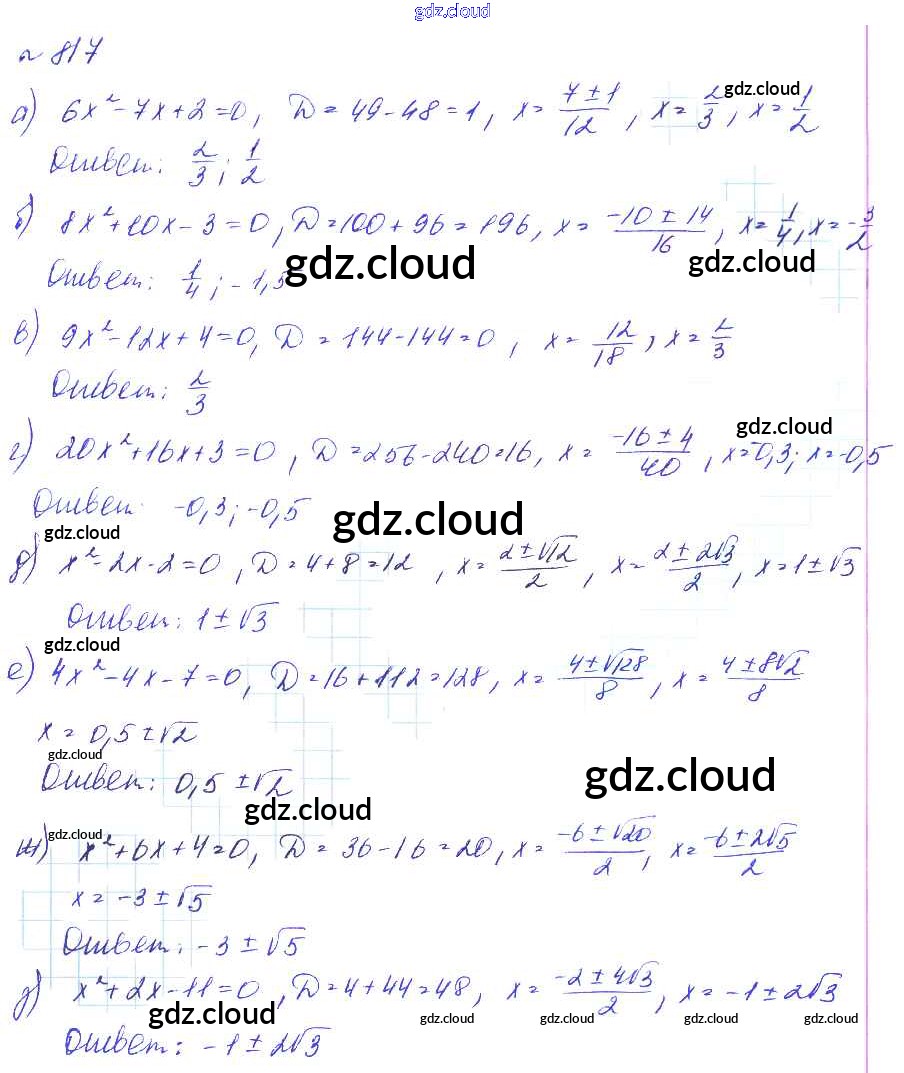 gdz.cloud
№ 817
а) 6x² - 7x + 2 = 0, D = 49 - 48 = 1, x = (7 ± 1)/12, x = 2/3, x = 1/2
gdz.cloud
Ответ: 2/3; 1/2
б) 8x² + 10x - 3 = 0, D = 100 + 96 = 196, x = (-10 ± 14)/16, x = 1/4, x = -3/2
Ответ: 1/4; -1,5
gdz.cloud gdz.cloud
в) 9x² - 12x + 4 = 0, D = 144 - 144 = 0, x = 12/18, x = 2/3
Ответ: 2/3
gdz.cloud
г) 20x² + 16x + 3 = 0, D = 256 - 240 = 16, x = (-16 ± 4)/40, x = -0,3; x = -0,5
Ответ: -0,3; -0,5
gdz.cloud gdz.cloud
д) x² - 2x - 2 = 0, D = 4 + 8 = 12, x = (2 ± √12)/2, x = (2 ± 2√3)/2, x = 1 ± √3
Ответ: 1 ± √3
gdz.cloud
е) 4x² - 4x - 7 = 0, D = 16 + 112 = 128, x = (4 ± √128)/8, x = (4 ± 8√2)/8
x = 0,5 ± √2
gdz.cloud gdz.cloud
Ответ: 0,5 ± √2
gdz.cloud
gdz.cloud
ж) x² + 6x + 4 = 0, D = 36 - 16 = 20, x = (-6 ± √20)/2, x = (-6 ± 2√5)/2
x = -3 ± √5
Ответ: -3 ± √5
д) x² + 2x - 11 = 0, D = 4 + 44 = 48, x = (-2 ± 4√3)/2, x = -1 ± 2√3
gdz.cloud gdz.cloud gdz.cloud gdz.cloud gdz.cloud
Ответ: -1 ± 2√3